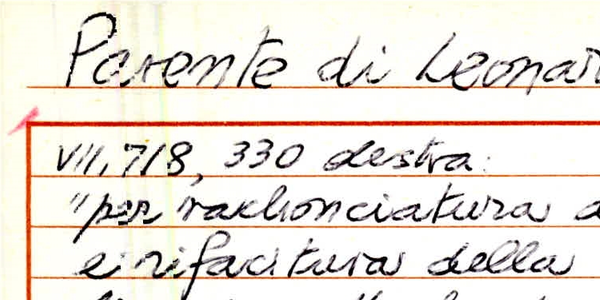 Parente di Leonar
VII, 718, 330 destra:
"per rachonciatura a
e rifacitura della